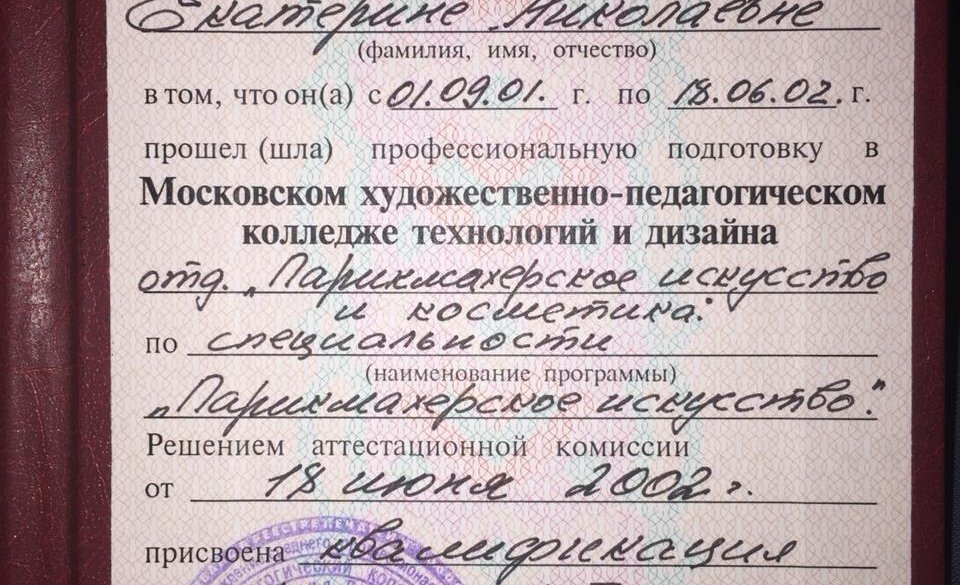 Екатерине Николаевне
(фамилия, имя, отчество)
в том, что он(а) с 01.09.01. г. по 18.06.02. г.
прошел (шла) профессиональную подготовку в
Московском художественно-педагогическом
колледже технологий и дизайна
отд. „Парикмахерское искусство
и косметика"
по специальности
(наименование программы)
„Парикмахерское искусство."
Решением аттестационной комиссии
от 18 июня 2002 г.
присвоена квалификация